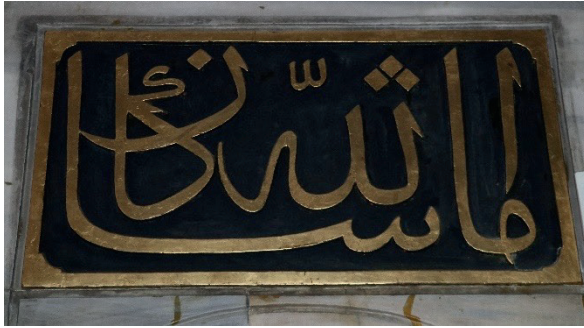 ما شا الله كان